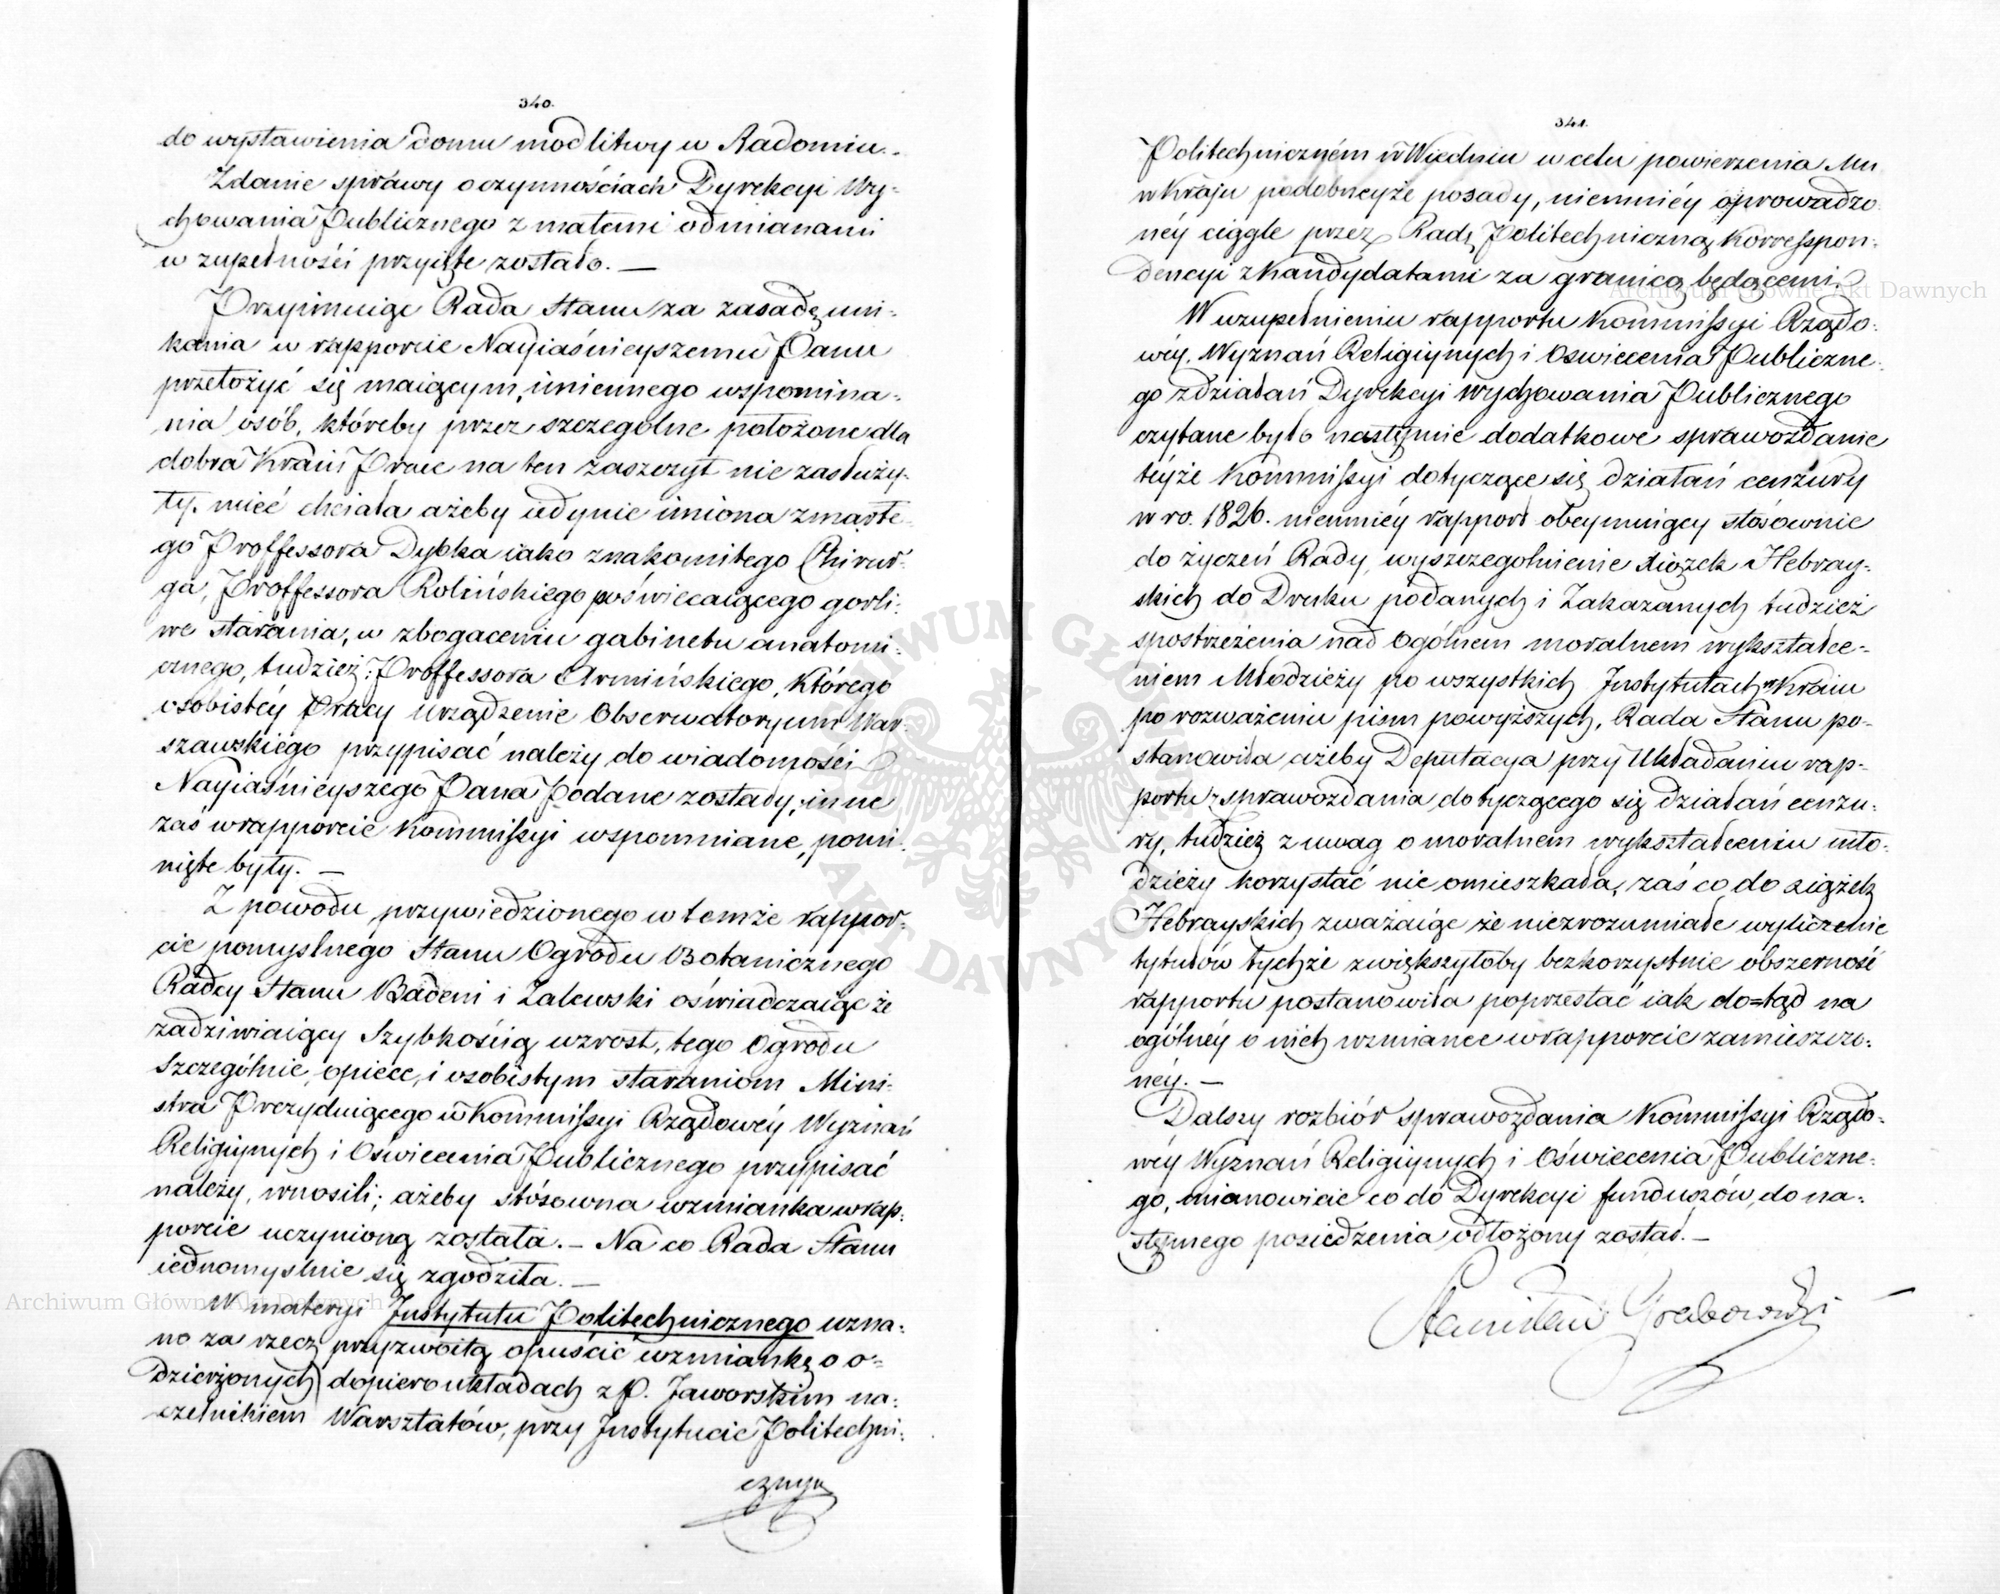 340.
do wystawienia domu modlitwy w Radomiu.
Zdanie sprawy o czynnościach Dyrekcyi Wy-
chowania Publicznego z małemi odmianami
w zupełności przyięte zostało. —
Przyimuiąc Rada Stanu za zasadę uni-
kania w rapporcie Nayiaśnieyszemu Panu
przełożyć się maiącym, imiennego wspomina-
nia osób, któreby przez szczególne położone dla
dobra Kraiu Prace na ten zaszczyt nie zasłuży-
ły, mieć chciała ażeby iedynie imiona zmarłe-
go Proffessora Dybka iako znakomitego Chirur-
ga, Proffessora Rolińskiego poświęcaiącego gorli-
we starania, w zbogaceniu gabinetu anatomi-
cznego, tudzież: Proffessora Armińskiego, którego
osobistéy pracy urządzenie Obserwatoryum War-
szawskiego przypisać należy do wiadomości
Nayiaśnieyszego Pana Podane zostały; inne
zaś w rapporcie Kommissyi wspomniane, pomi-
nięte były. —
Z powodu przywiedzionego w temże rappor-
cie pomyslnego Stanu Ogrodu Botanicznego
Radcy Stanu Badeni i Zalewski oświadczaiąc że
zadziwiaiący Szybkością wzrost, tego Ogrodu
Szczególnie, opiece, i osobistym staraniom Mini-
stra Prezyduiącego w Kommissyi Rządowéy Wyznań
Religiynych i Oświecenia Publicznego przypisać
należy, wnosili; ażeby stósowna wzmianka w rap-
porcie uczynioną została. — Na co Rada Stanu
iednomyslnie się zgodziła. —
W materyi Instytutu Politechnicznego uzna-
no za rzecz przyzwoitą opuścić wzmiankę o o-
dzierżonych dopiero układach z P. Jaworskim na-
czelnikiem Warsztatów, przy Instytucie Politechni-
cznym
341.
Politechniczném w Wiedniu w celu powierzenia Mu
w Kraju podobneyże posady, niemniéy o prowadzo
néy ciągle przez Radę Politechniczną Korrespon-
dencyi z Kandydatami za granicą będącemi
W uzupełnieniu rapportu Kommissyi Rządo-
wéy. Wyznań Religiynych i Oswiecenia Publiczne-
go z działań Dyrekcyi Wychowania Publicznego
czytane było następnie dodatkowe sprawozdanie
téyże Kommissyi dotyczące się działań cenzury
w ro. 1826. niemniéy rapport obeymuiący stósownie
do życzeń Rady, wyszczególnienie xiążek Hebray-
skich do Druku podanych i Zakazanych tudzież
spostrzeżenia nad Ogólnem moralnem wykształce-
niem Młodzieży po wszystkich Instytutach w Kraiu
po rozważeniu pism powyższych, Rada Stanu po-
stanowiła ażeby Deputacya przy Układaniu rap-
portu z sprawozdania dotyczącego się działań cenzu-
ry, tudzież z uwag o moralnem wykształceniu mło-
dzieży korzystać nie omieszkała, zaś co do xiążek
Hebrayskich zważaiąc że niezrozumiałe wyliczenie
tytułów tychże zwiększyłoby bezkorzystnie obszerność
rapportu postanowiła poprzestać iak do=tąd na
ogólnéy o nich wzmiance w rapporcie zamieszczo-
néy. —
Dalszy rozbiór sprawozdania Kommissyi Rządo-
wéy Wyznań Religiynych i Oświecenia Publiczne-
go, mianowicie co do Dyrekcyi funduszów, do na-
stępnego posiedzenia odłożony został. —
Stanisław Grabowski
Archiwum Główne Akt Dawnych
Archiwum Główne Akt Dawnych
ARCHIWUM GŁÓWNE AKT DAWNYCH